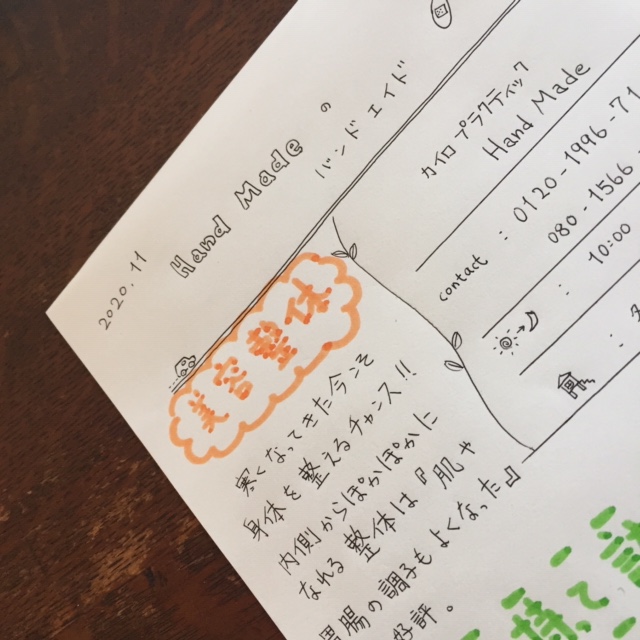 2020.11
Hand Made の
バンドエイド
カイロプラクティック
Hand Made
contact : 0120-1996-71
080-1566
: 10:00
:
美容整体
寒くなってきた今こそ
身体を整えるチャンス!!
内側からぽかぽかに
なれる整体は『肌や
胃腸の調子もよくなった』
好評。